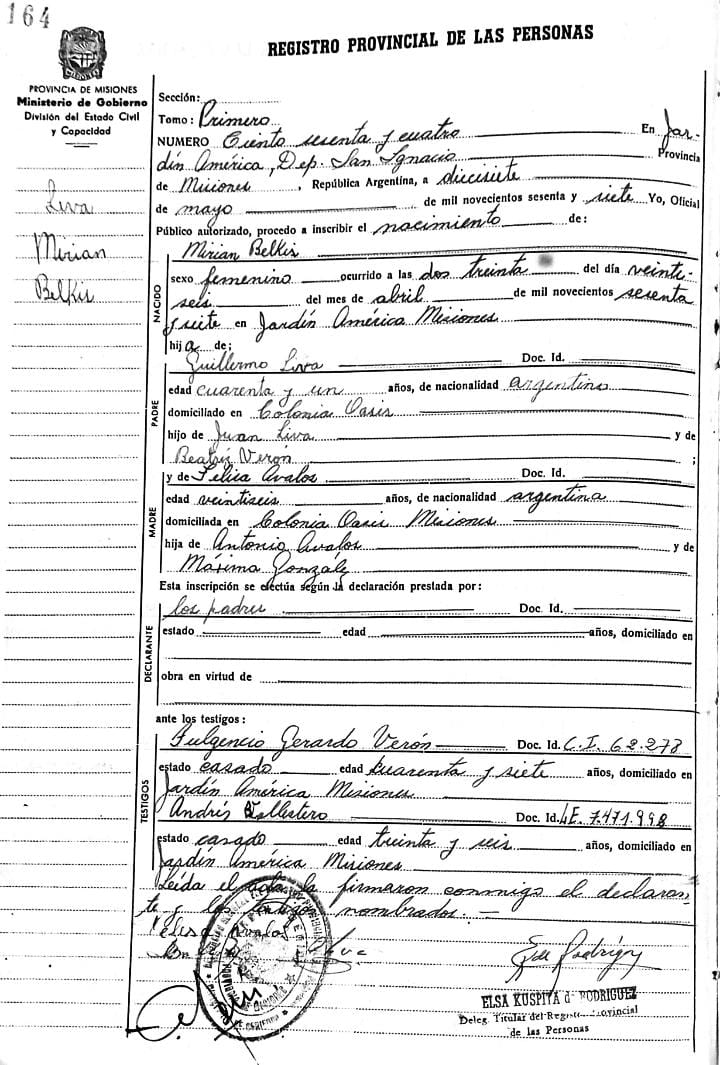 164
REGISTRO PROVINCIAL DE LAS PERSONAS
PROVINCIA DE MISIONES
Ministerio de Gobierno
División del Estado Civil
y Capacidad
Liva
Mirian
Belkis
Sección:
Tomo: Primero
NUMERO Ciento sesenta y cuatro En Jar-
dín América, Dep. San Ignacio Provincia
de Misiones, República Argentina, a diecisiete
de mayo de mil novecientos sesenta y siete Yo, Oficial
Público autorizado, procedo a inscribir el nacimiento de:
NACIDO
Mirian Belkis
sexo femenino ocurrido a las dos treinta del día veinti-
seis del mes de abril de mil novecientos sesenta
y siete en Jardín América Misiones
hija de;
PADRE
Guillermo Liva Doc. Id.
edad cuarenta y un años, de nacionalidad argentino
domiciliado en Colonia Oasis
hijo de Juan Liva y de
Beatriz Verón ;
MADRE
y de Felisa Avalos Doc. Id.
edad veintiseis años, de nacionalidad argentina
domiciliada en Colonia Oasis Misiones
hija de Antonio Avalos y de
Máxima Gonzáles
Esta inscripción se efectúa según la declaración prestada por:
DECLARANTE
los padres Doc. Id.
estado edad años, domiciliado en
obra en virtud de
ante los testigos:
TESTIGOS
Fulgencio Gerardo Verón Doc. Id. C.I. 62.278
estado casado edad cuarenta y siete años, domiciliado en
Jardín América Misiones
Andrés Ballestero Doc. Id. LE. 7.471.998
estado casado edad treinta y seis años, domiciliado en
Jardín América Misiones
Leída el acta la firmaron conmigo el declaran
te y los testigos nombrados.—
Felisa Avalos
ELSA KUSPITA d RODRIGUEZ
Deleg. Titular del Registro Provincial
de las Personas